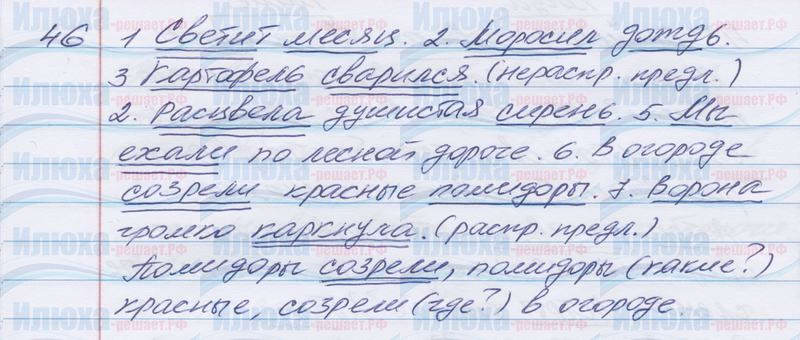 46 1 Светит месяц. 2. Моросил дождь.
3 Картофель сварился. (нераспр. предл.)
2. Расцвела душистая сирень. 5. Мы
ехали по лесной дороге. 6. В огороде
созрели красные помидоры. 7. Ворона
громко каркнула. (распр. предл.)
Помидоры созрели, помидоры (какие?)
красные, созрели (где?) в огороде.